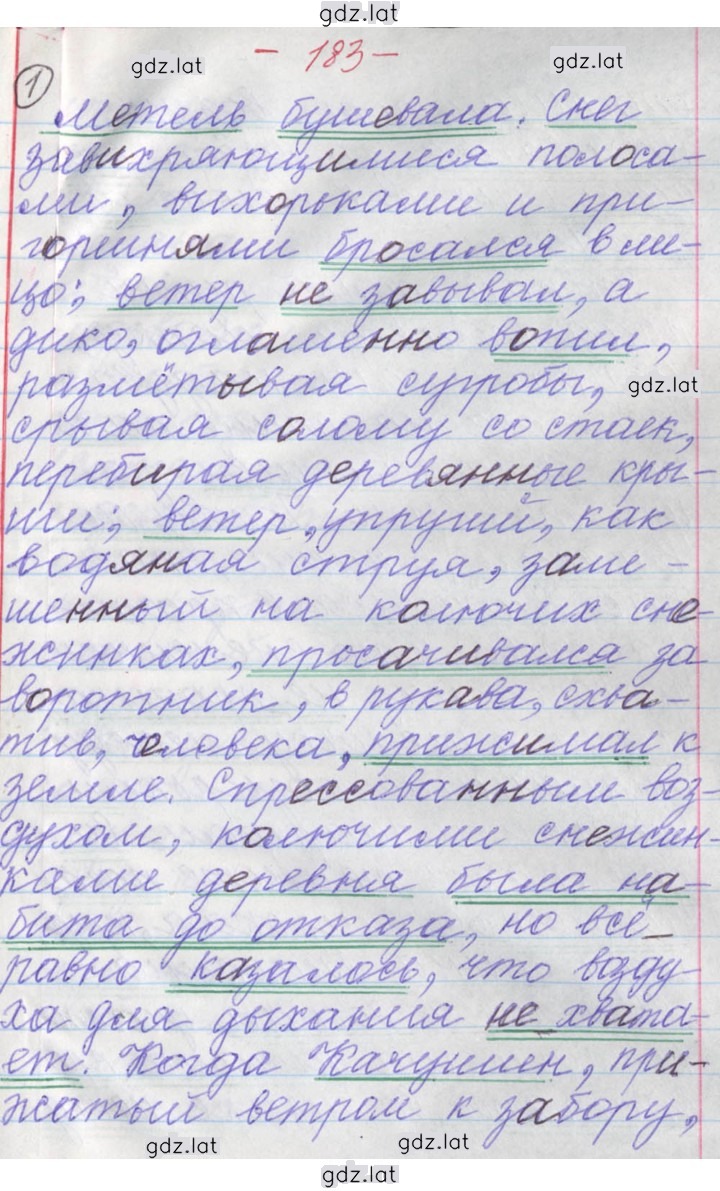 gdz.lat
- 183 -
gdz.lat
gdz.lat
1
Метель бушевала. Снег
завихряющимися полоса-
ми, вихорьками и при-
горшнями бросался в ли-
цо; ветер не завывал, а
дико, оглашенно вопил,
размётывая сугробы,
gdz.lat
срывая солому со стаек,
перебирая деревянные кры-
ши; ветер, упругий, как
водяная струя, заме-
шенный на колючих сне-
жинках, просачивался за
воротник, в рукава, схва-
тив, человека, прижимал к
земле. Спрессованным воз-
духом, колючими снежин-
ками деревня была на-
бита до отказа, но всё_
равно казалось, что возду-
ха для дыхания не хвата-
ет. Когда Качушин, при-
жатый ветром к забору,
gdz.lat
gdz.lat
gdz.lat